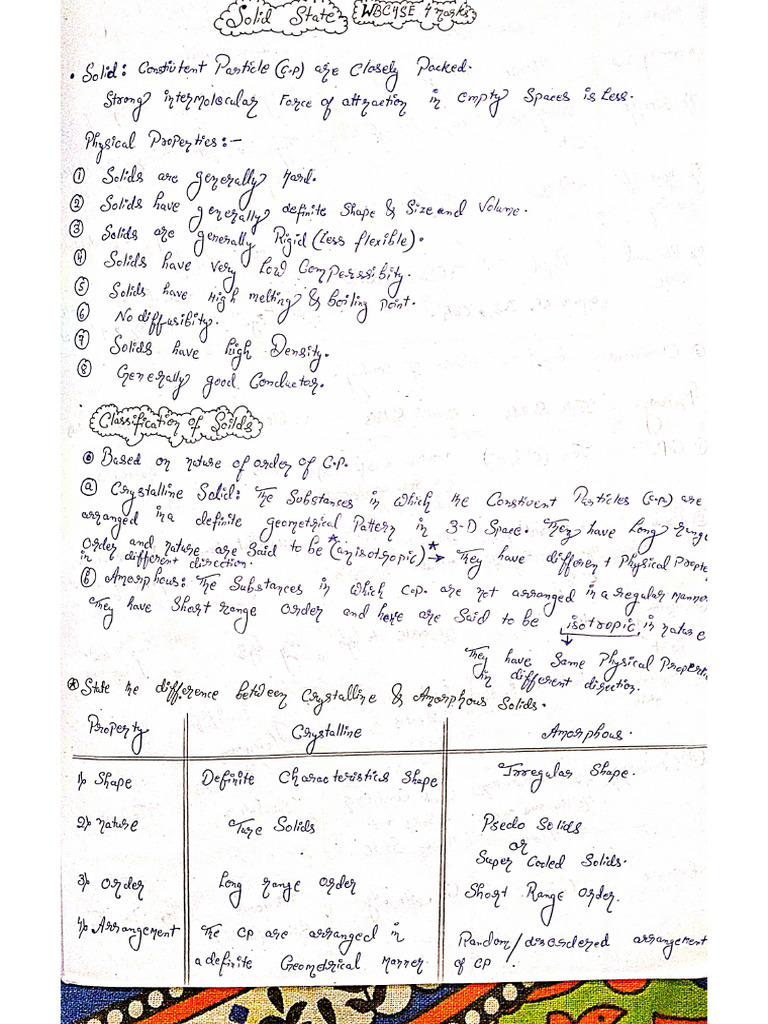 Solid State WBCHSE 4 marks
• Solid: Constutent Particle (C.P) are Closely Packed.
Strong intermolecular Force of attraction in empty Spaces is Less.
Physical Properties:-
① Solids are generally hard.
② Solids have generally definite Shape & Size and Volume.
③ Solids are generally Rigid (Less flexible).
④ Solids have very Low Comperssibity.
⑤ Solids have High melting & boiling Point.
⑥ No diffusibity.
⑦ Solids have high Density.
⑧ Generally good Conductor.
Classification of Soilds
Based on nature of order of C.P.
ⓐ Crystalline Solid: The Substances in which the Constivent Particles (C.P.) are
arranged in a definite geometrical Pattern in 3-D Space. They have Long range
Order and nature are Said to be *(anisotropic)* → They have different Physical Prope
in different direction.
ⓑ Amorphous: The Substances in which C.P. are not arranged in a regular manner
They have Short range Order and here are Said to be isotropic, in nature
They have Same Physical Properti
in different direction.
State the difference between Crystalline & Amorphous Solids.
Property Crystalline Amorphous.
1) Shape Definite Characteristics Shape Irregular Shape.
2) nature Ture Solids Psedo Solids
or
Super Cooled Solids.
3) Order Long range Order Short Range Order.
4) Arrangement The CP are arranged in Random/disordered arrangement
a definite Geomdrical Manner of CP.